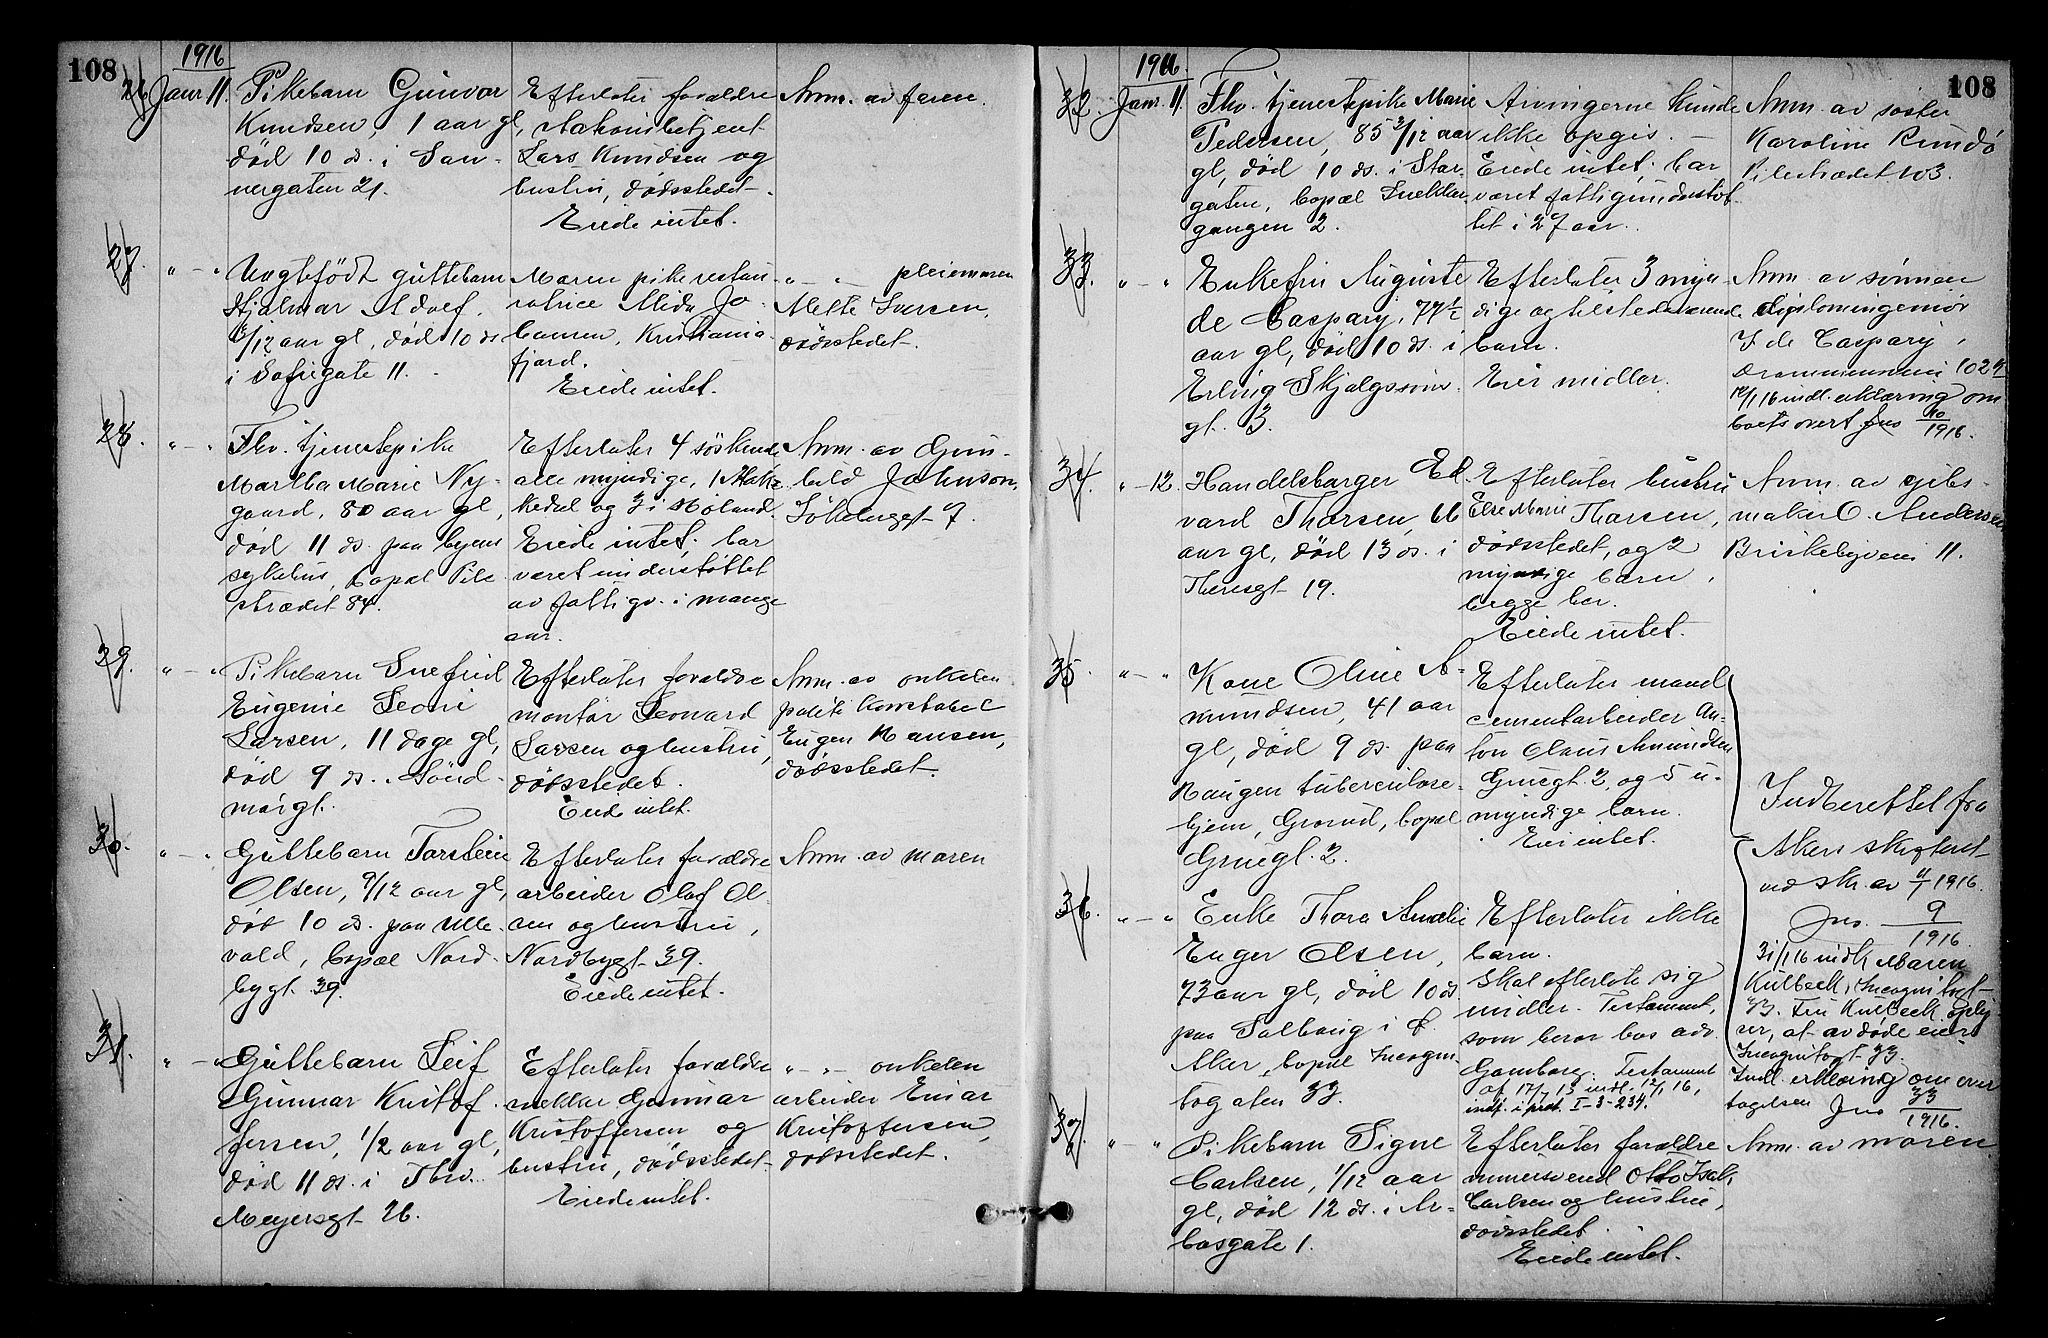 108
1916
26 Janr 11.
Pikebarn Gunvor
Knudsen, 1 aar gl,
død 10 ds. i San-
nergaten 21.
Efterlater forældre
stationsbetjent
Lars Knudsen og
hustru, dødsstedet.
Eiede intet.
Anm. av faren.
27. " - "
Uegtefödt guttebarn
Hjalmar Adolf,
/12 aar gl, död 10 ds
i Sofiegate 11.
Moren pike restau-
ratrice Mida Jo-
hansen, Kristiania-
fjord.
Eiede intet.
" - " pleiemoren
Mette Iversen,
dödsstedet.
28. " - "
Fhv. tjenestepike
Martha Marie Ny-
gaard, 80 aar gl,
död 11 ds. paa byens
sykehus, bopæl Pile-
strædet 84.
Efterlater 4 söskende
alle myndige, 1
og 3 i Höland.
Eiede intet, har
været understöttet
av fattigv. i mange
aar.
Anm. av Gun-
hild Johnson,
7.
29. " - "
Pikebarn Snefrid
Eugenie Leoni
Larsen, 11 dage gl,
död 9 ds. Sönd-
mörgt.
Efterlater forældre
montör Leonard
Larsen og hustru,
dödsstedet.
Eiede intet.
Anm. av onkelen
politikonstabel
Eugen Hansen,
dödsstedet.
30. " - "
Guttebarn Torstein
Olsen, 9/12 aar gl,
död 10 ds. paa Ulle-
vold, bopæl Nord-
bygt. 39.
Efterlater forældre
arbeider Olaf Ol-
sen og hustru,
Nordbygt. 39.
Eiede intet.
Anm. av moren
31. " - "
Guttebarn Leif
Gunnar Kristof-
fersen, 1/2 aar gl,
död 11 ds. i Thv.
Meyersgt 26.
Efterlater forældre
snekker Gunnar
Kristoffersen og
hustru, dödsstedet
Eiede intet.
" - " onkelen
arbeider Einar
Kristoffersen,
dödsstedet.
108
1916.
32. Janr. 11.
Fhv. tjenestepike Marie
Pedersen, 85 2/12 aar
gl, död 10 ds. i Stor-
gaten, bopæl
gangen 2.
Arvingerne kunde
ikke opgis. —
Eiede intet, har
været fattigunderstöt-
tet i 27 aar.
Anm. av söster
Karoline Rundö
Pilestrædet 103.
33. " - "
Enkefru Auguste
de Caspary, 77 1/2
aar gl, död 10 ds. i
Erling Skjalgssöns-
gt. 3.
Efterlater 3 myn-
dige og tilstedeværende
barn.
Eier midler.
Anm. av sönnen
diplomingeniör
F. de Caspary,
Drammensvei 102
/1 16 indl. erklæring om
boets overt. Jno 40/1916.
34. " - 12.
Handelsborger Ed-
vard Thorsen, 66
aar gl, död 13 ds. i
Theresgt 19.
Efterlater hustru
Else Marie Thorsen,
dödsstedet, og 2
myndige barn,
begge her.
Eiede intet.
Anm. av gibs-
maker O. Andersen
Briskebyveien 11.
35. " - "
Kone Oline A-
mundsen, 41 aar
gl, död 9 ds. paa
Haugen tuberculose-
hjem, Grorud, bopæl
Gruegt. 2.
Efterlater mand
cementarbeider An-
ton Olaus Amundsen
Gruegt. 2, og 5 u-
myndige barn.
Eier intet.
Indberettet fra
Akers skifteret
ved skr. av 11/1 1916.
Jno. 9/1916
36. " - "
Enke Thora Amalie
Enger Olsen,
73 aar gl, död 10 ds.
paa Solhaug i Ö.
Aker, bopæl Incogni-
togaten 33.
Efterlater ikke
barn.
Skal efterlate sig
midler. Testament,
som beror hos adv.
Gamborg. Testament
af 17/7 13 indl. 12/1 16,
indf. i prot. I-3-234.
31/1 16 indk Maren
Kulbeck, Incognitogt
33. Fru Kulbeck oply-
ser, at avdöde eiers
Incognitogt 33.
Indl. erklæring om over-
tagelsen Jno 33/1916.
37. " - "
Pikebarn Signe
Carlsen, 1/12 aar
gl, död 12 ds. i Ar-
bosgate 1.
Efterlater forældre
murersvend Otto Isak
Carlsen og hustru,
dödsstedet.
Eiede intet.
Anm. av moren